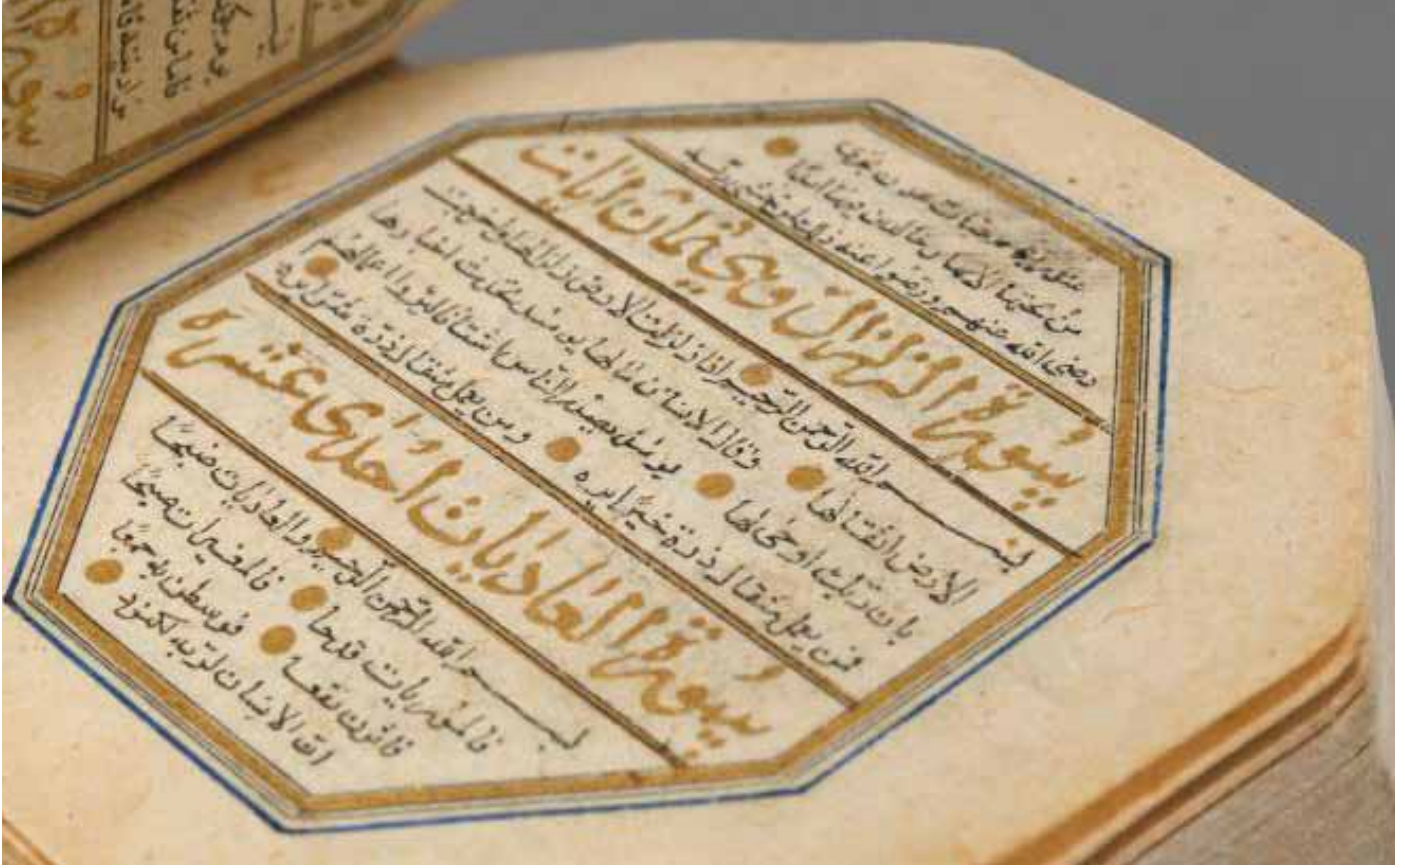 عند ربهم جنات عدن تجري
من تحتها الانهار خالدين فيها ابدا
رضى الله عنهم ورضوا عنه ذلك لمن خشي ربه
سورة الزلزال وهي ثمان ايات
بسم الله الرحمن الرحيم اذا زلزلت الارض زلزالها واخرجت
الارض اثقالها وقال الانسان مالها يومئذ تحدث اخبارها
بان ربك اوحى لها يومئذ يصدر الناس اشتاتا ليروا اعمالهم
فمن يعمل مثقال ذرة خيرا يره ومن يعمل مثقال ذرة شرا يره
سورة العاديات احدى عشره
بسم الله الرحمن الرحيم والعاديات ضبحا
فالموريات قدحا فالمغيرات صبحا
فاثرن نقعا فوسطن به جمعا
ان الانسان لربه لكنود